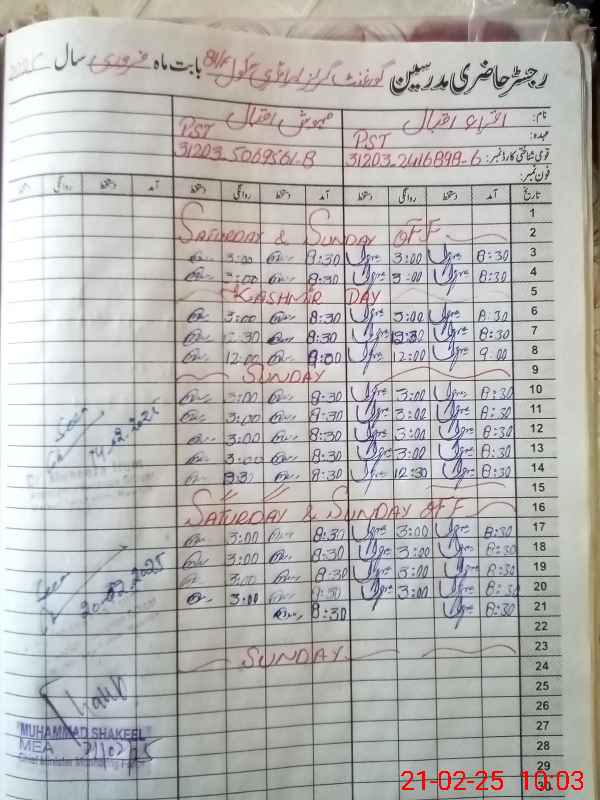 رجسٹر حاضری مدرسین گورنمنٹ گرلز پرائمری سکول بابت ماہ فروری سال 2025
نام: اقراء اقبال مہوش اقبال
عہدہ: PST PST
قومی شناختی کارڈ نمبر: 31203-2416898-6 31203-5069561-8
فون نمبر:
تاریخ آمد دستخط روانگی دستخط آمد دستخط روانگی دستخط آمد دستخط روانگی دستخط
1
2 SATURDAY & SUNDAY OFF
3 8:30 3:00 8:30 3:00
4 8:30 3:00 8:30 3:00
5 KASHMIR DAY
6 8:30 3:00 8:30 3:00
7 8:30 8:30
8 9:00 12:00 9:00 12:00
9 SUNDAY
10 8:30 3:00 8:30 3:00
11 8:30 3:00 8:30 3:00
12 8:30 3:00 8:30 3:00
13 8:30 3:00 8:30 3:00
14 8:30 12:30 8:30
15
16 SATURDAY & SUNDAY OFF
17 8:30 3:00 8:30 3:00
18 8:30 3:00 8:30 3:00
19 8:30 3:00 8:30 3:00
20 8:30 3:00 8:30 3:00
21 8:30 8:30
22
23 SUNDAY
24
25
26
27
28
29
30
Seen
14.02.2025
Seen
20.02.2025
MUHAMMAD SHAKEEL
MEA 21/02/25
21-02-25 10:03